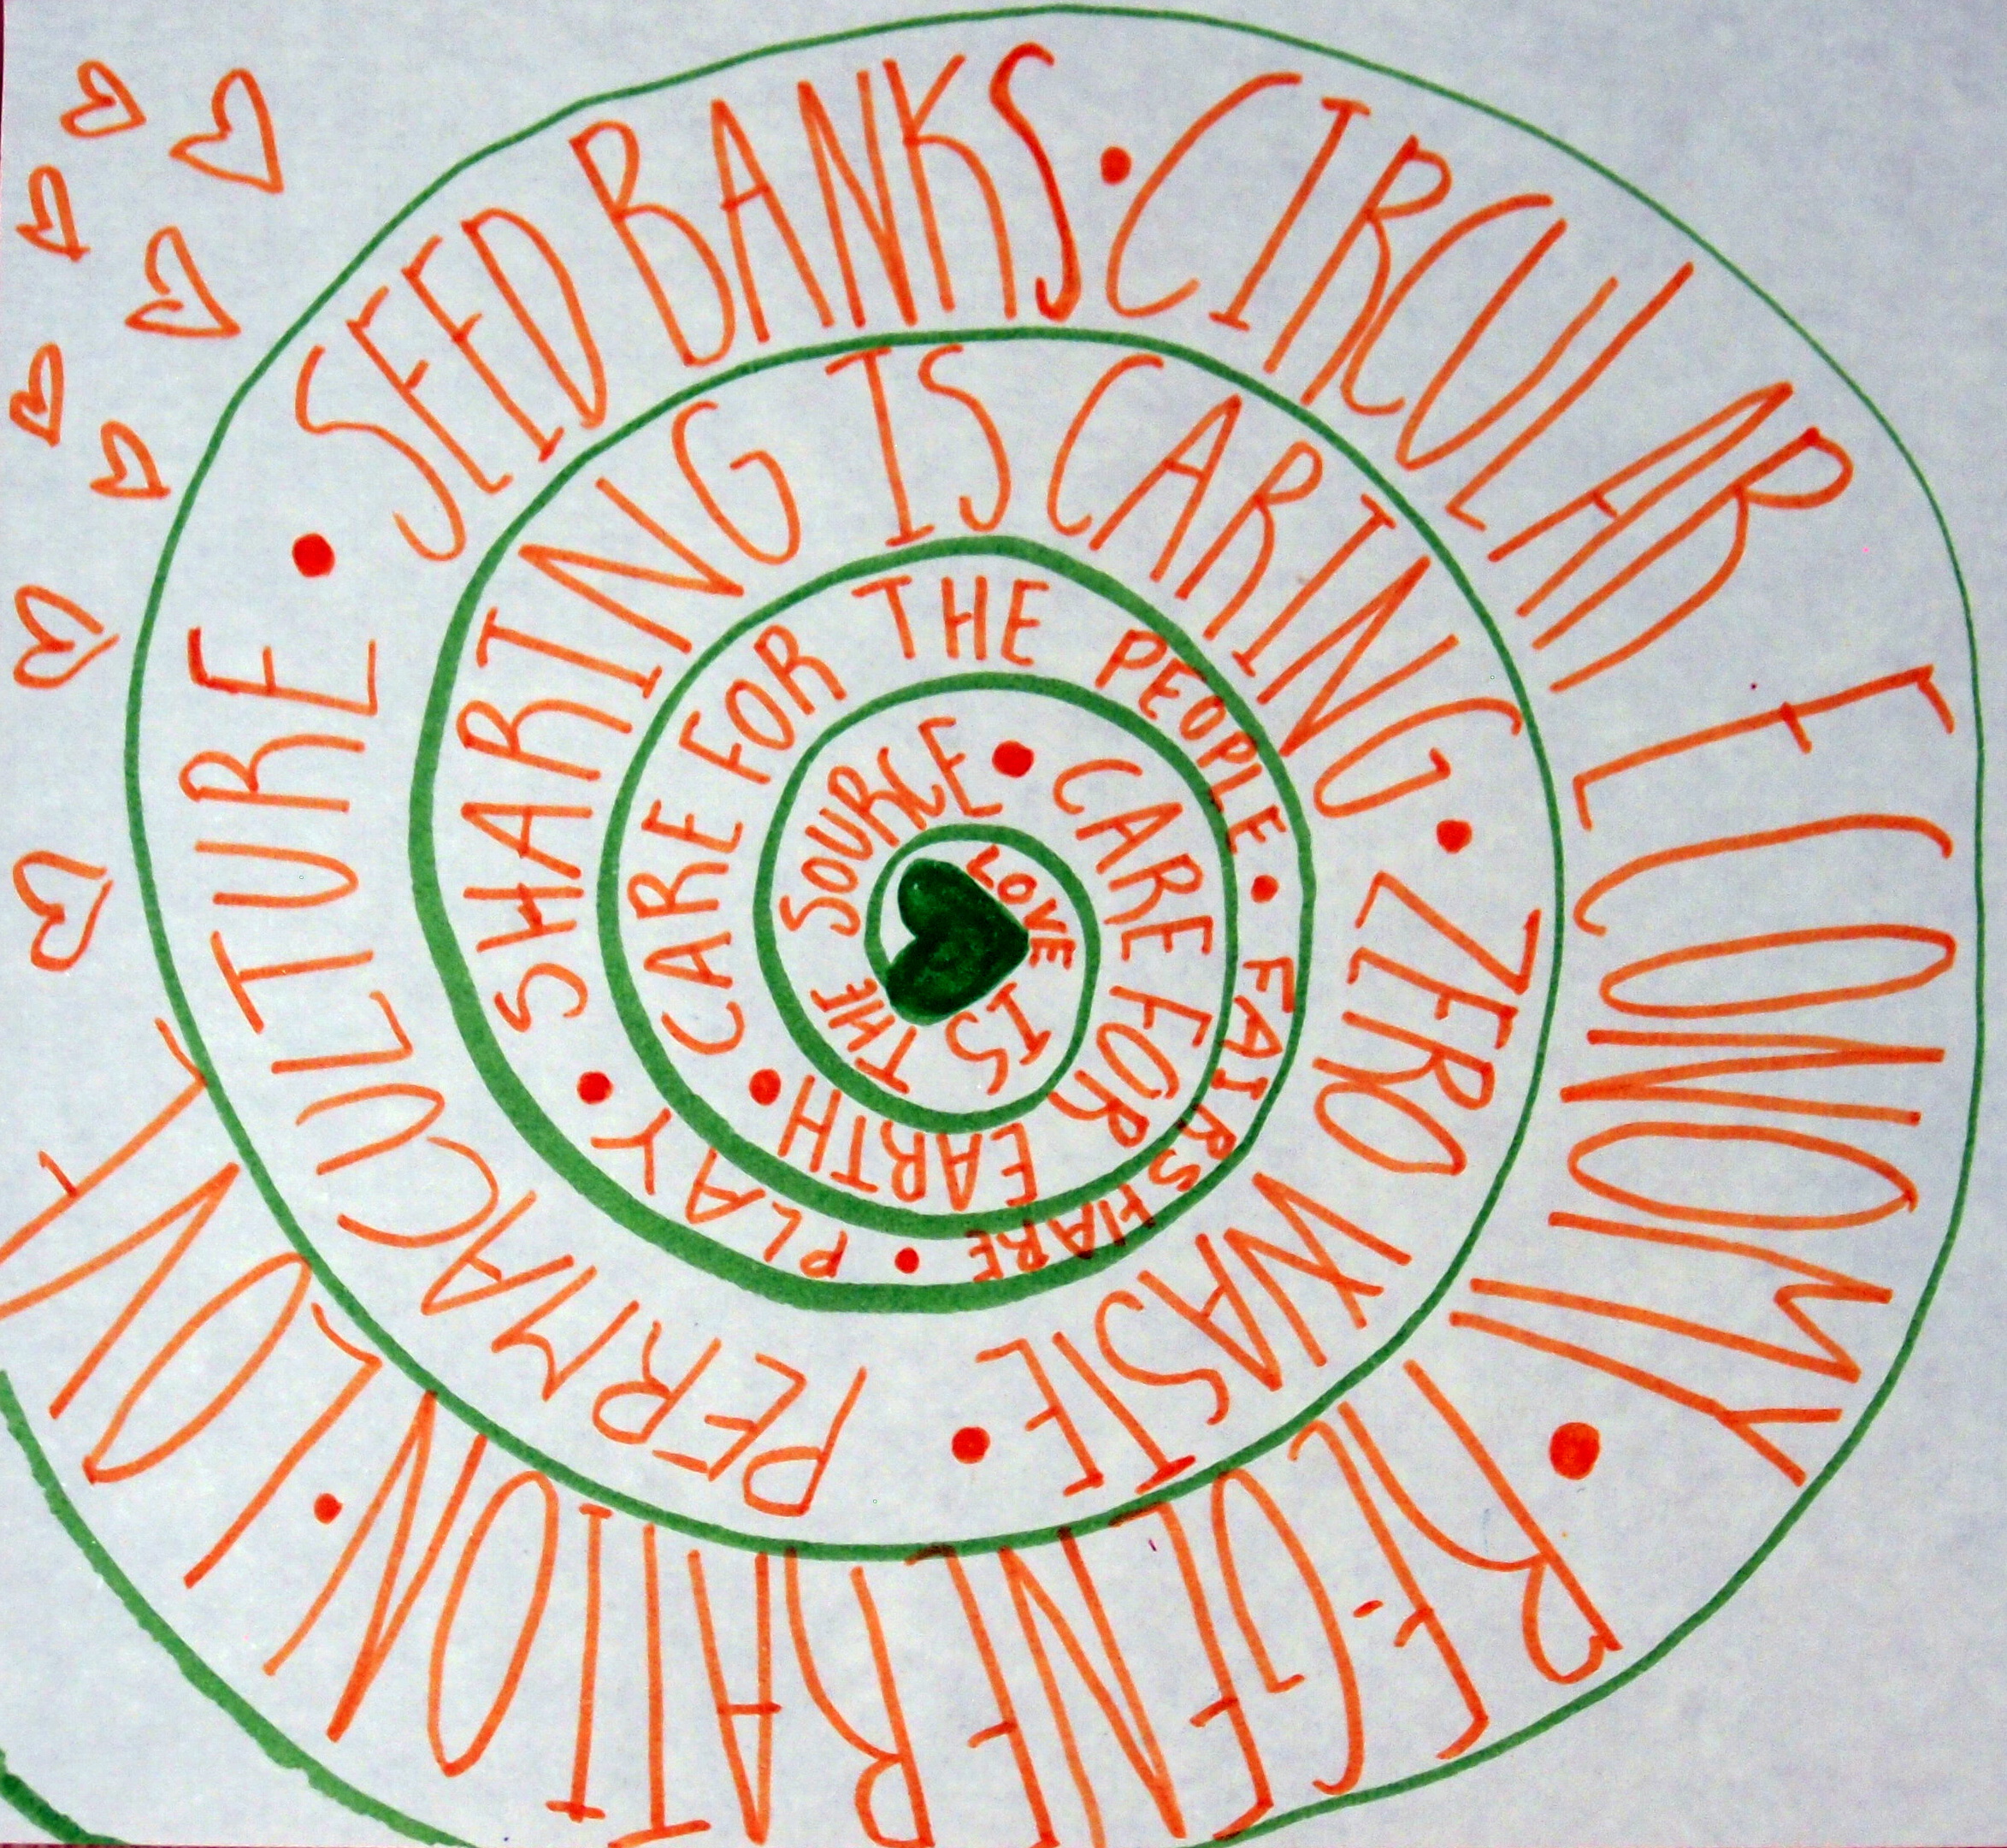 LOVE IS THE SOURCE • CARE FOR EARTH • CARE FOR THE PEOPLE • FAIR SHARE • PLAY • SHARING IS CARING • ZERO WASTE • PERMACULTURE • SEED BANKS • CIRCULAR ECONOMY • REGENERATION • LOVE